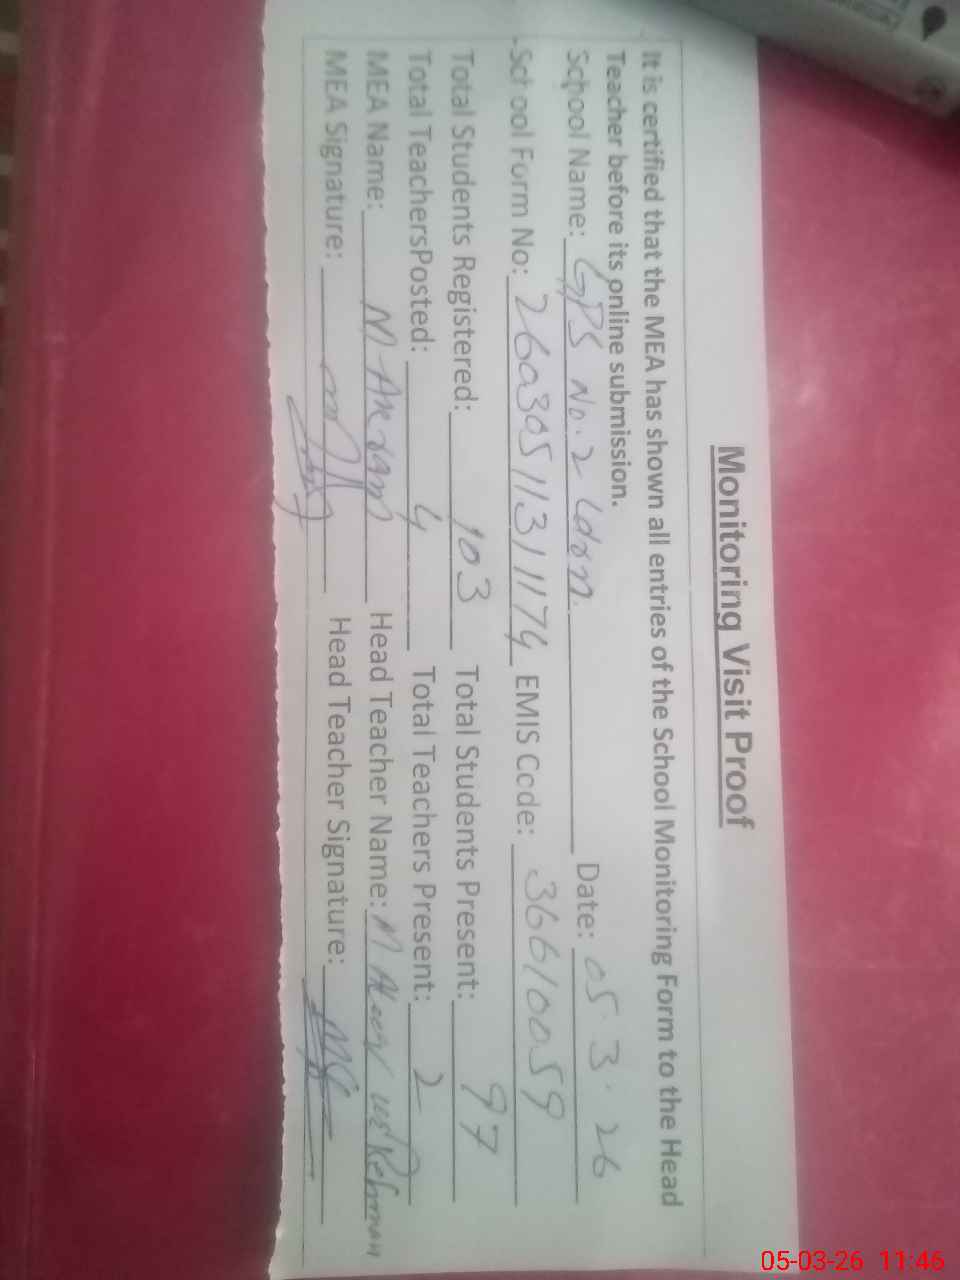 Monitoring Visit Proof
It is certified that the MEA has shown all entries of the School Monitoring Form to the Head
Teacher before its online submission.
School Name: GPS No. 2 Date: 05.3.26
School Form No: 26a3051131174 EMIS Code: 36610059
Total Students Registered: 103 Total Students Present: 97
Total TeachersPosted: 4 Total Teachers Present: 2
MEA Name: M. Akram Head Teacher Name: M ur Rehman
MEA Signature: Head Teacher Signature:
05-03-26 11:46